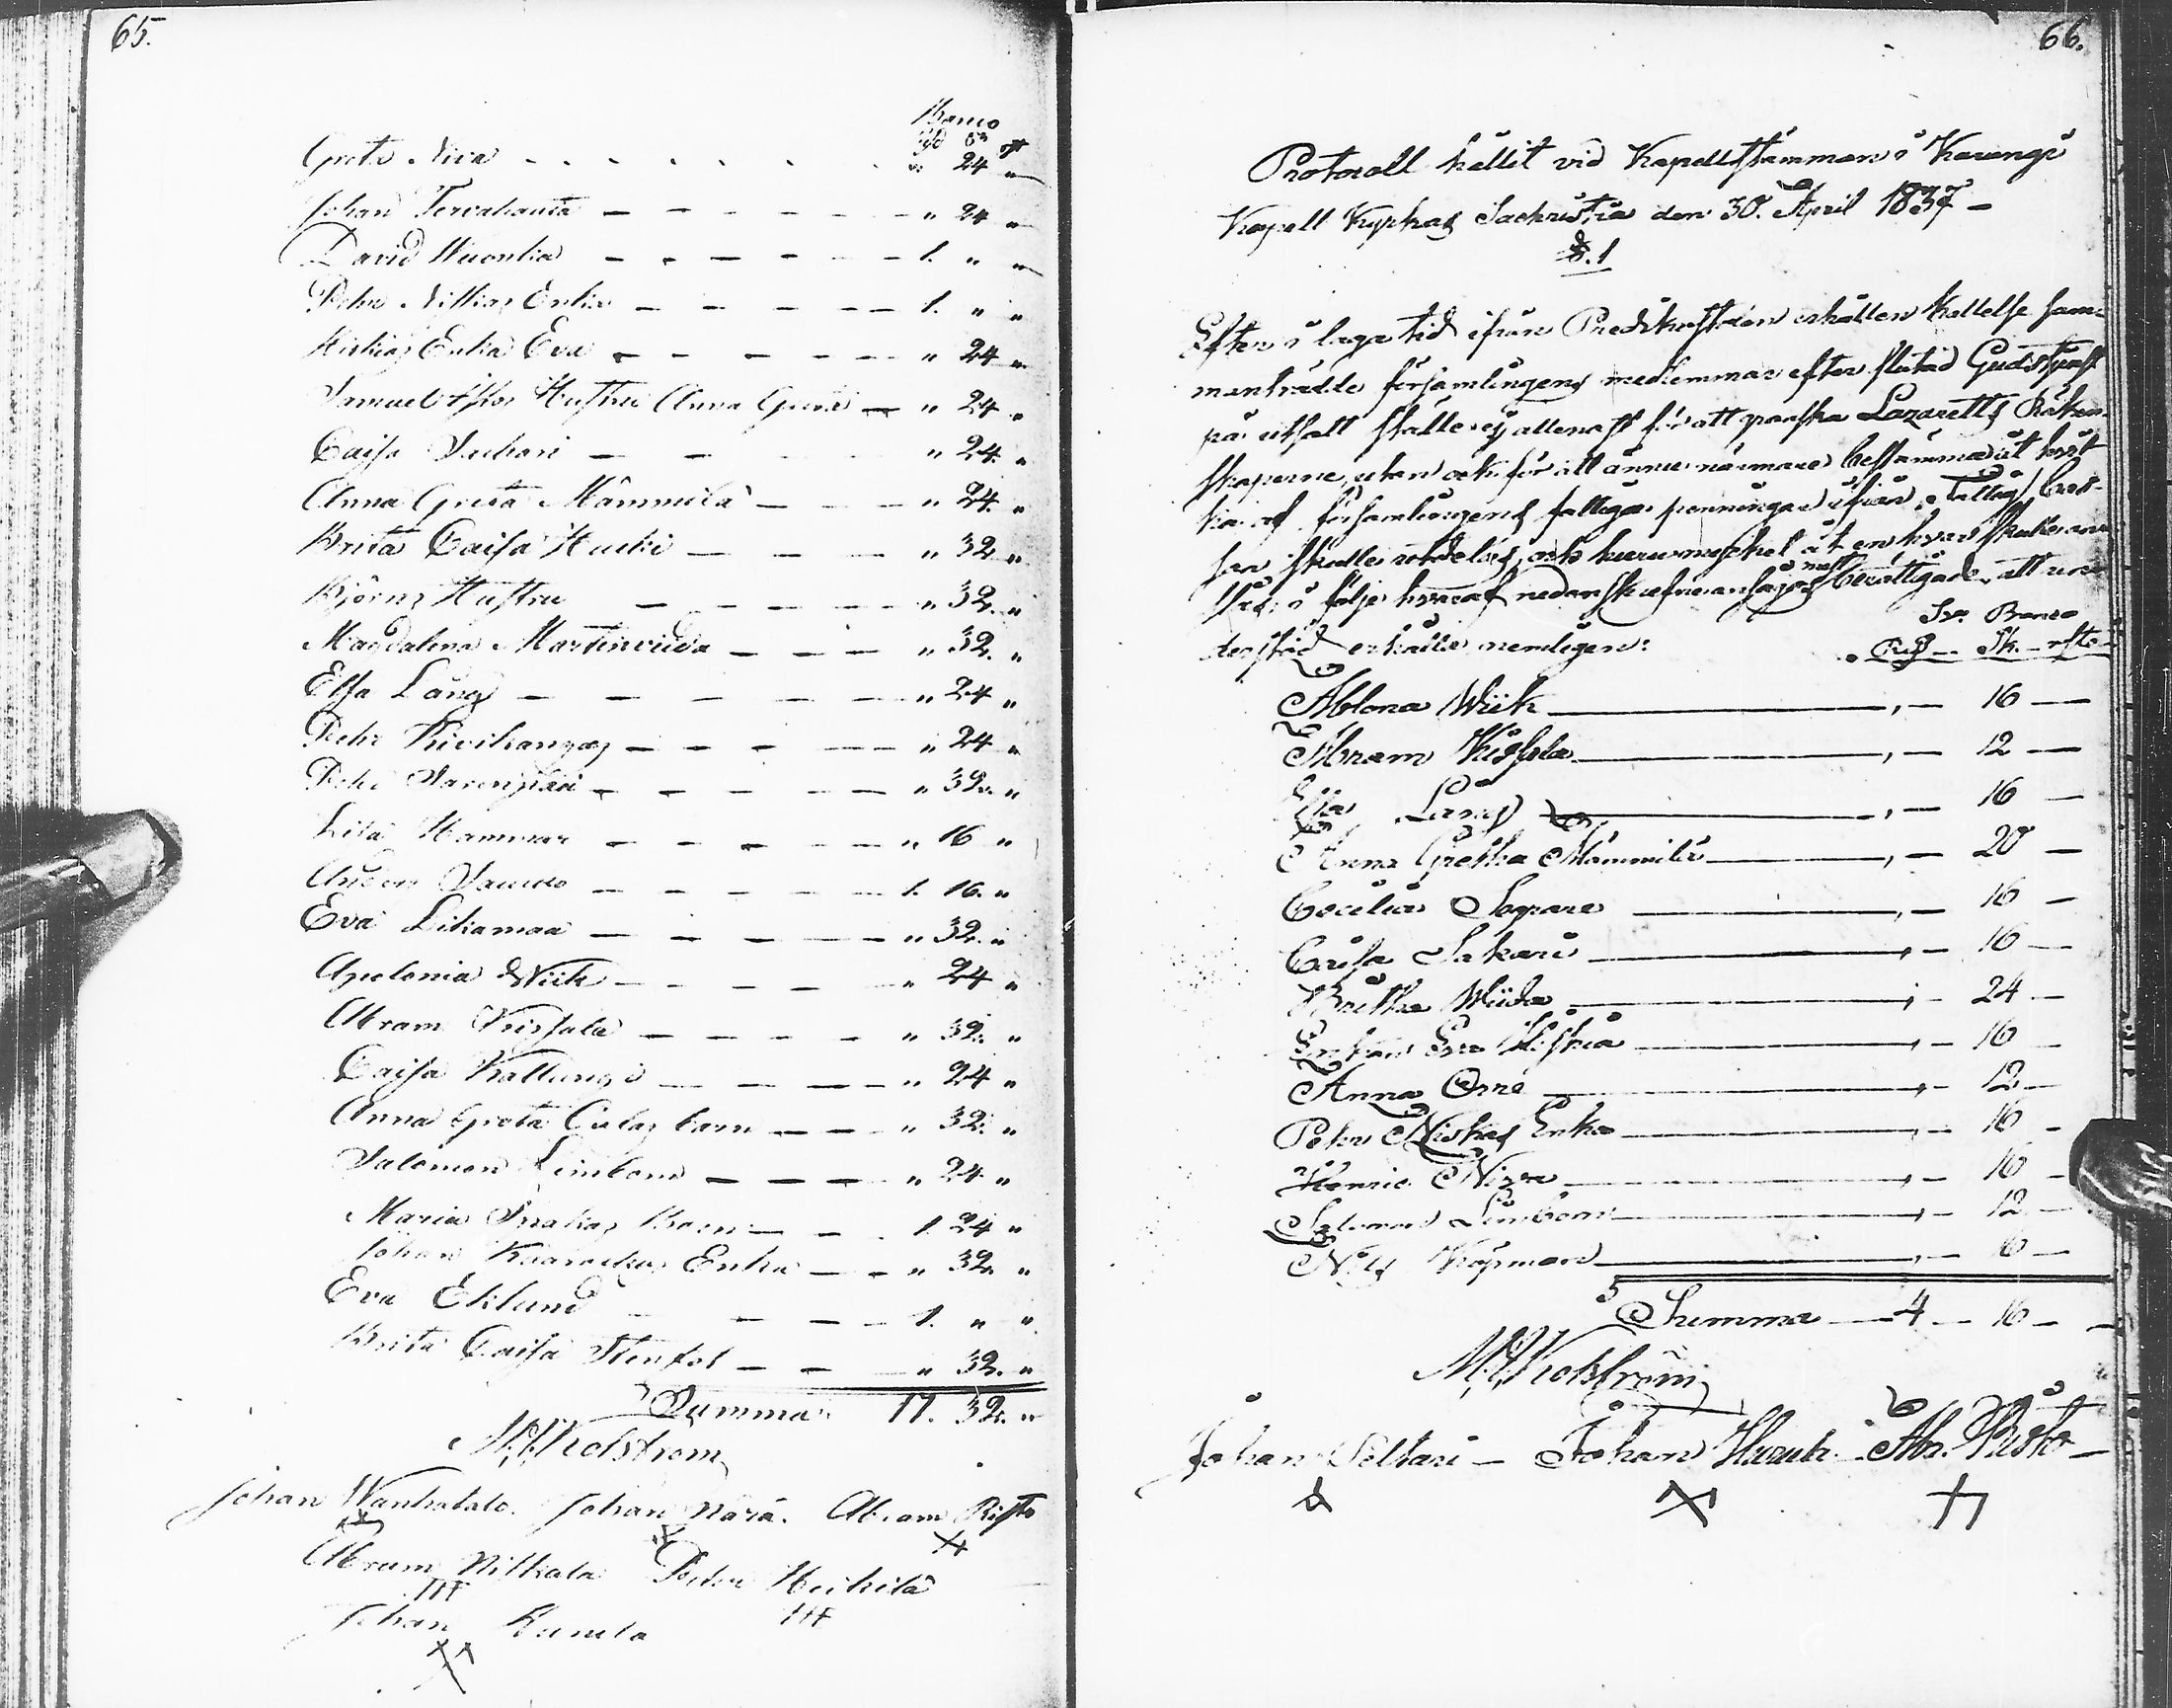 65.
Banco
Rd sk rst
Greta Niva - - - - - - - " 24 "
Johan Tervahauta - - - - - - " 24 "
David Wuonka - - - - - - 1. " "
Pehr Niskas Enka - - - - - 1. " "
Kiskias Enka Eva - - - - - " 24 "
Samuel Hustru Anna Greta - " 24 "
Caisa Sachari - - - - " 24. "
Anna Greta Mämmilä - - - " 24. "
Brita Caisa Hucki - - - " 32 "
Björns Hustru - - - - " 32. "
Magdalena Martinviida - - - " 32. "
Elsa Lång - - - - - " 24 "
Pehr Kivikangas - - - - - " 24 "
Pehr - - - - - " 32. "
Lisa Hammar - - - - - " 16 "
Anders - - - - - 1. 16. "
Eva Likamaa - - - - - " 32. "
Apolonia Wiik - - - - - " 24 "
Abram Kissala - - - - " 32. "
Caisa Kallungi - - - - " 24 "
Anna Greta barn - - - " 32. "
Salomon Limbom - - - - " 24 "
Maria Barn - - 1. 24 "
Johan Enka - - " 32. "
Eva Eklund - - - - 1. " "
Brita Caisa - - - " 32. "
Summa 17. 32. "
Johan Wanhatalo. Johan Nära. Abram Risto
Abram Nilkala Pehr Heikilä
Johan Kumla
66.
Protocoll hållit vid Kapellstämman i Karungi
Kapell Kyrkas Sackristia den 30. April 1837 -
§. 1
Efter i laga tid ifrån Predikostolen erhållen Kallelse sam-
manträdde församlingens medlemmar efter slutad Gudstjenst
på utsatt ställe ej allenast för att granska Lazaretts Räken-
skaperne, utan ock för att ännu närmare bestämma åt hvil-
ka af församlingens fattiga penningar ifrån Fattig Cas-
san skulle utdelas, och huru mycket åt en hvar skulle
i följe hvaraf nedanskrefne ansågos mest berättigade att un-
derstöd erhålla nemligen:
Sv. Banco
Rd - Sk. - rst
Ablona Wiik , - 16 -
Abram Kissala , - 12 -
Elsa Lång , - 16 -
Anna Gretha Mämmilä , - 20 -
Cecilia , - 16 -
Caisa Sakari , - 16 -
Britha Wiida , - 24 -
Enkan Eva Kiskia , - 16 -
Anna Orre , - 12 -
Peter Niskas Enka , - 16 -
Henric Niva , - 16 -
Salomon Limbom , - 12 -
Nils Köpman , - 16 -
Summa - 4 - 16 -
Johan - Johan - Abr. Risto -